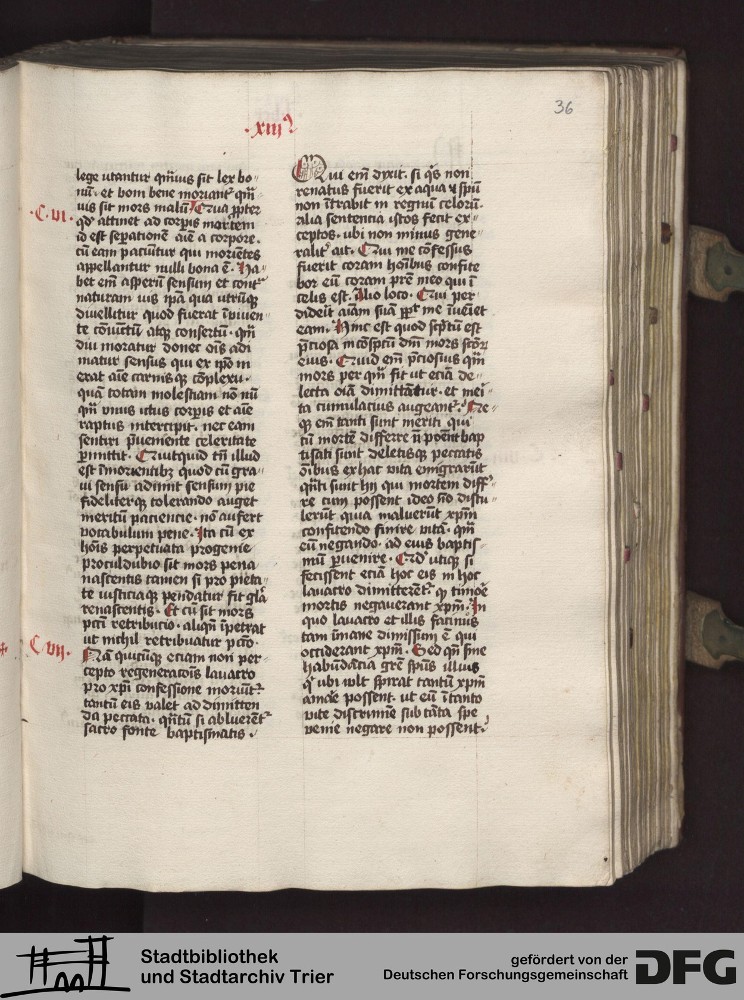 36
·xiij
lege utantur qm̄uis sit lex bo
nū· et boni bene moriant᷑ qm̄
uis sit mors malū Qua p̱pter
·C·vi· qd̓ attinet ad corpis mortem
id est sepationē aīe a corpore·
cū eam paciūtur qui moriētes
appellantur nulli bona ē· Ha
bet em̄ asperū sensum et cont̃
naturam uis ip̄a qua utrūq̄
diuellitur quod fuerat ī viuen
te cōiūctū atq̄ consertū· qm̄
diu moratur donec oīs adi
matur sensus qui ex ip̄o in
erat aīe carnisq̄ cōplexu·
quā totam molestiam nō nū
qm̄ vnius ictus corpis et aīe
raptus intercipit· nec eam
sentiri p̱ueniente celeritate
p̱mittit· Quitquid tn̄ illud
est ī morientibꝫ quod cū gra
ui sensu adimit sensum pie
fideliterq̄ tolerando auget
meritū paciencie· nō aufert
vocabulum pene· Ita cū ex
hoīs perpetuata progenie
proculdubio sit mors pena
nascentis tamen si pro pieta
te iusticiaq̄ pendatur fit gl̄a
renascentis· Et cū sit mors
pctī retribucio· aliqn̄ īpetrat
ut nichil retribuatur pctō·
C·vij· Nā quicūq̄ eciam non per
cepto regeneratoīs lauacro
pro xp̄i confessione moriūt᷑·
tantū eis valet ad dimitten
da peccata· qn̄tū si abluerēt᷑
sacro fonte baptismatis·
Qui em̄ dixit· si q̓s non
renatus fuerit ex aqua et spū
non ītrabit in regnū celorū·
alia sentencia istos fecit ex
ceptos· ubi non minus gene
ralit᷑ ait· Qui me cōfessus
fuerit coram hoībus confite
bor eū coram prē meo qui ī
celis est· Alio loco· Qui per
dideit aīam suā ppt̓ me īueiet
eam· Hinc est quod scp̄tū est
p̄ciosa in cōspctū dn̄i mors scōr̄
eius· Quid em̄ p̄ciosius qm̄
mors per qm̄ fit ut eciā de
licta oīā dimittātur· et mei
ta cumulacius augeant᷑· Ne
q̄ em̄ tanti sunt meriti qui
cū mortē differre n̄ poēnt bap
tisati sunt deletisq̄ peccatis
oībus ex hac vita emigrarūt
qn̄ti sunt hij qui mortem diff᷑
re cum possent ideo nō distu
lerūt quia maluerūt xp̄m
confitendo finire vitā· qm̄
eū negando· ad eius baptis
mū p̱uenire· Qd̓ utiq̄ si
fecissent eciā hoc eis in hoc
lauacro dimitteret᷑· q̱ timoē
mortis negauerant xp̄m· In
quo lauacro et illis facinus
tam īmane dimissum ē qui
occiderant xp̄m· Sed qn̄ sīne
habūdācia grē spūs illius
q̓ ubi wlt spirat tantū xp̄m
amāē possent· ut eū ī tanto
vite discrimīē sub tāta spe
venie negare non possent·
Stadtbibliothek
und Stadtarchiv Trier
gefördert von der
Deutschen Forschungsgemeinschaft
DFG